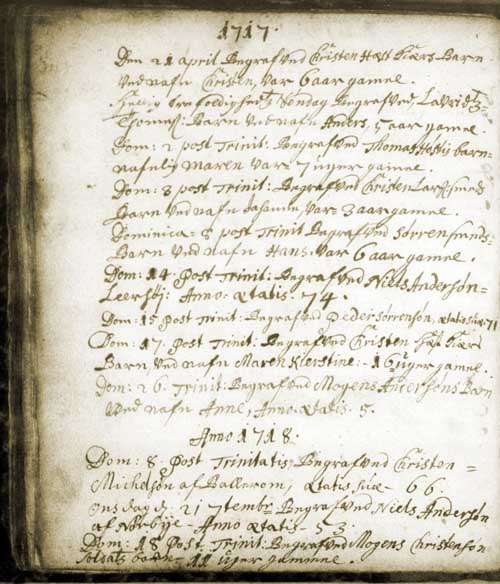 1717.
Den 21 april Begrafved Christen Hæst Kiærs Barn
ved nafn Christen, var 6 aar gamel.
Hellig Trefoldighets Søndag Begrafved, Lavrids
Thomes: Barn ved nafn Anders, 5 aar gamel.
Dom: 2 post Trinit: Begrafved Thomas barn
nafnlig Maren var 7 uger gamel.
Dom: 3 post Trinit: Begrafved Christen
Barn ved nafn Johanne, var 3 aar gamel.
Dominica 8 post Trinit Begrafved Sörren Smeds
Barn ved nafn Hans, var 6 aar gamel.
Dom: 14 Post Trinit: Begrafved Niels Andersøn
Leerhøj: Anno Ætatis. 74.
Dom: 15 Post Trinit: Begrafved Peder Sørrensøn, ætatis suæ 71
Dom: 17. Post Trinit: Begrafved Christen Hæst Kiærs
Barn, ved nafn Maren Kierstine - 16 uger gamel.
Dom: 26. Trinit: Begrafved Mogens Andersøns Barn
Ved nafn Anne, Anno ætatis 5.
Anno 1718.
Dom: 8. Post Trinitatis Begrafved Christen
Michelsøn af Ballerom, Ætatis suæ 66
Onsdag d. 21 7tembr Begrafved Niels Andersøn
af Nørbÿe - Anno Ætatis - 53.
Dom: 18 Post. Trinit: Begrafved Mogens Christensøn
Soldats barn - 11 uger gammel.